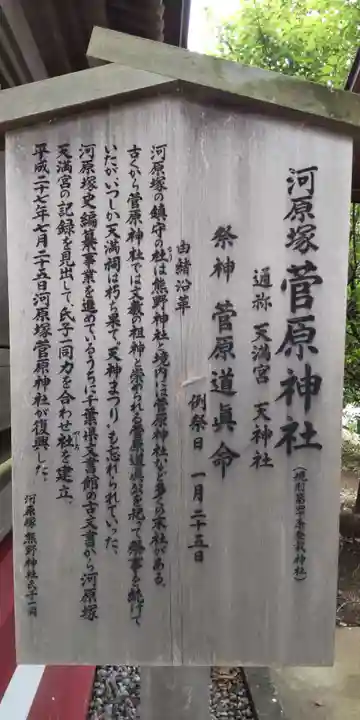 河原塚 菅原神社
通称 天満宮 天神社
祭神 菅原道眞命
例祭日 一月二十五日
由緒沿革
河原塚の鎮守の杜は熊野神社と境内には菅原神社など多くの末社がある。
古くから菅原神社では文教の祖神と崇められる菅原道眞公を祀って祭事を続けて
いたがいつしか天満祠は朽ち果て。天神まつりいも忘れられていった、
河原塚史編纂事業を進めているうちに千葉県文書館の古文書から河原塚
天満宮の記録を見出して、氏子一同力を合わせ社を建立、
平成二十七年七月二十五日河原塚菅原神社が復興した。
河原塚熊野神社氏子一同